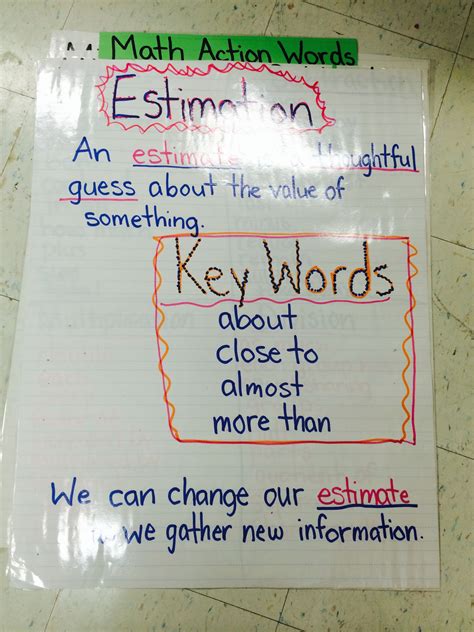 Math Action Words
Estimation
An estimate is a thoughtful
guess about the value of
something.
Key Words
about
close to
almost
more than
We can change our estimate
we gather new information.